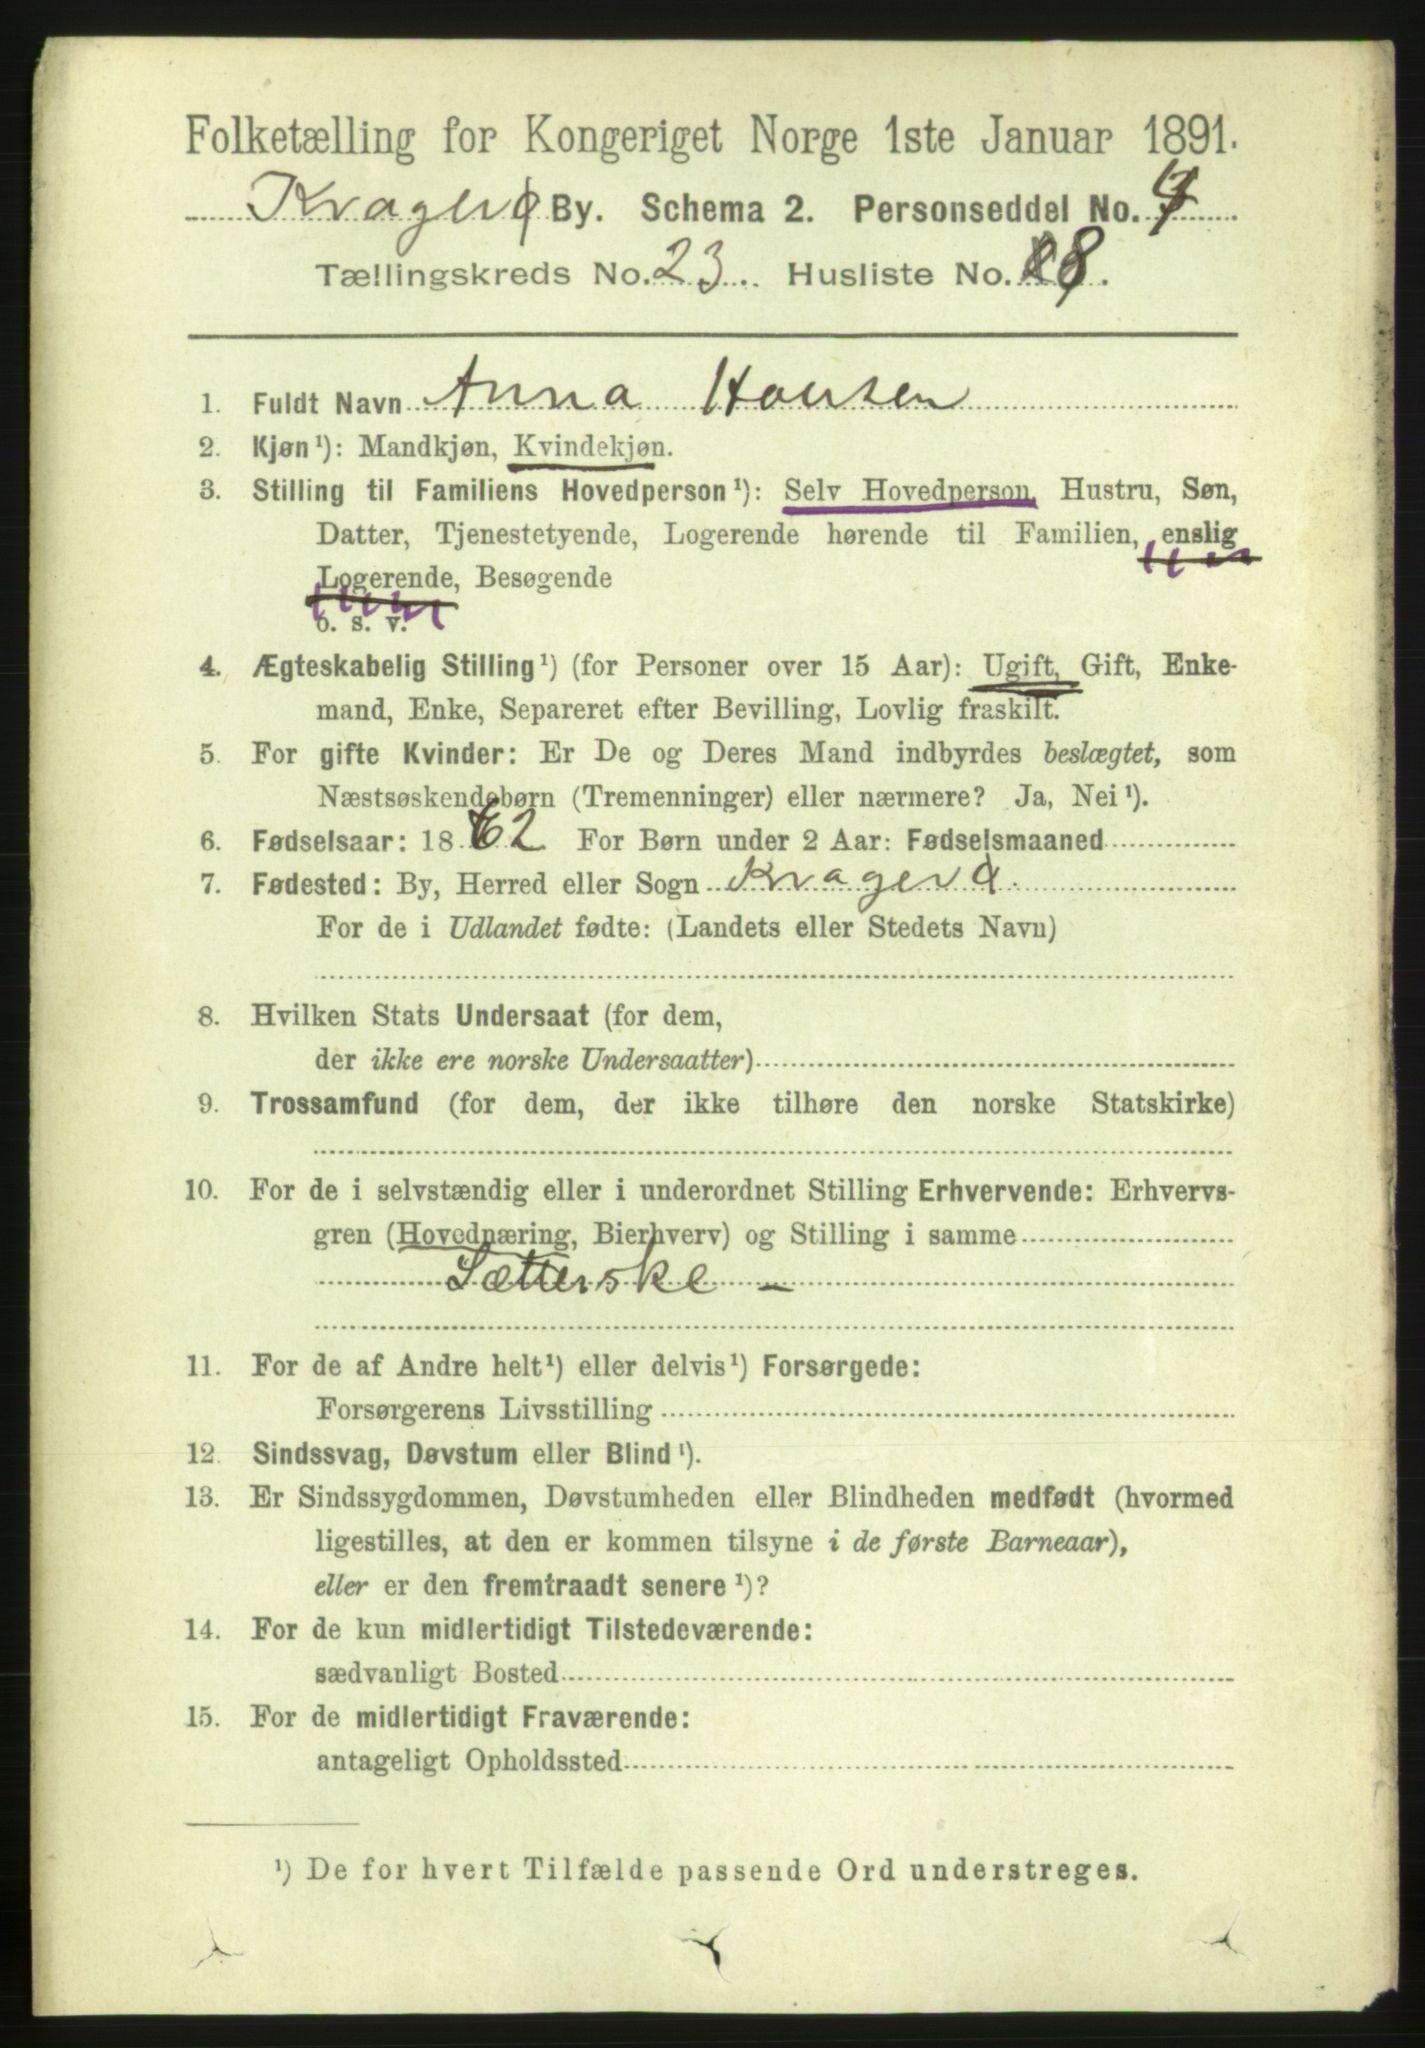 Folketælling for Kongeriget Norge 1ste Januar 1891.
Kragerø By. Schema 2. Personseddel No.
Tællingskreds No. 23. Husliste No. 8.
1. Fuldt Navn Anna Hansen
2. Kjøn¹): Mandkjøn, Kvindekjøn.
3. Stilling til Familiens Hovedperson¹): Selv Hovedperson, Hustru, Søn,
Datter, Tjenestetyende, Logerende hørende til Familien, enslig
Logerende, Besøgende
o. s. v.
4. Ægteskabelig Stilling¹) (for Personer over 15 Aar): Ugift, Gift, Enke-
mand, Enke, Separeret efter Bevilling, Lovlig fraskilt.
5. For gifte Kvinder: Er De og Deres Mand indbyrdes beslægtet, som
Næstsøskendebørn (Tremenninger) eller nærmere? Ja, Nei¹).
6. Fødselsaar: 1862 For Børn under 2 Aar: Fødselsmaaned
7. Fødested: By, Herred eller Sogn Kragerø.
For de i Udlandet fødte: (Landets eller Stedets Navn)
8. Hvilken Stats Undersaat (for dem,
der ikke ere norske Undersaatter)
9. Trossamfund (for dem, der ikke tilhøre den norske Statskirke)
10. For de i selvstændig eller i underordnet Stilling Erhvervende: Erhvervs-
gren (Hovednæring, Bierhverv) og Stilling i samme
Sætterske -
11. For de af Andre helt¹) eller delvis¹) Forsørgede:
Forsørgerens Livsstilling
12. Sindssvag, Døvstum eller Blind¹).
13. Er Sindssygdommen, Døvstumheden eller Blindheden medfødt (hvormed
ligestilles, at den er kommen tilsyne i de første Barneaar),
eller er den fremtraadt senere¹)?
14. For de kun midlertidigt Tilstedeværende:
sædvanligt Bosted
15. For de midlertidigt Fraværende:
antageligt Opholdssted
¹) De for hvert Tilfælde passende Ord understreges.